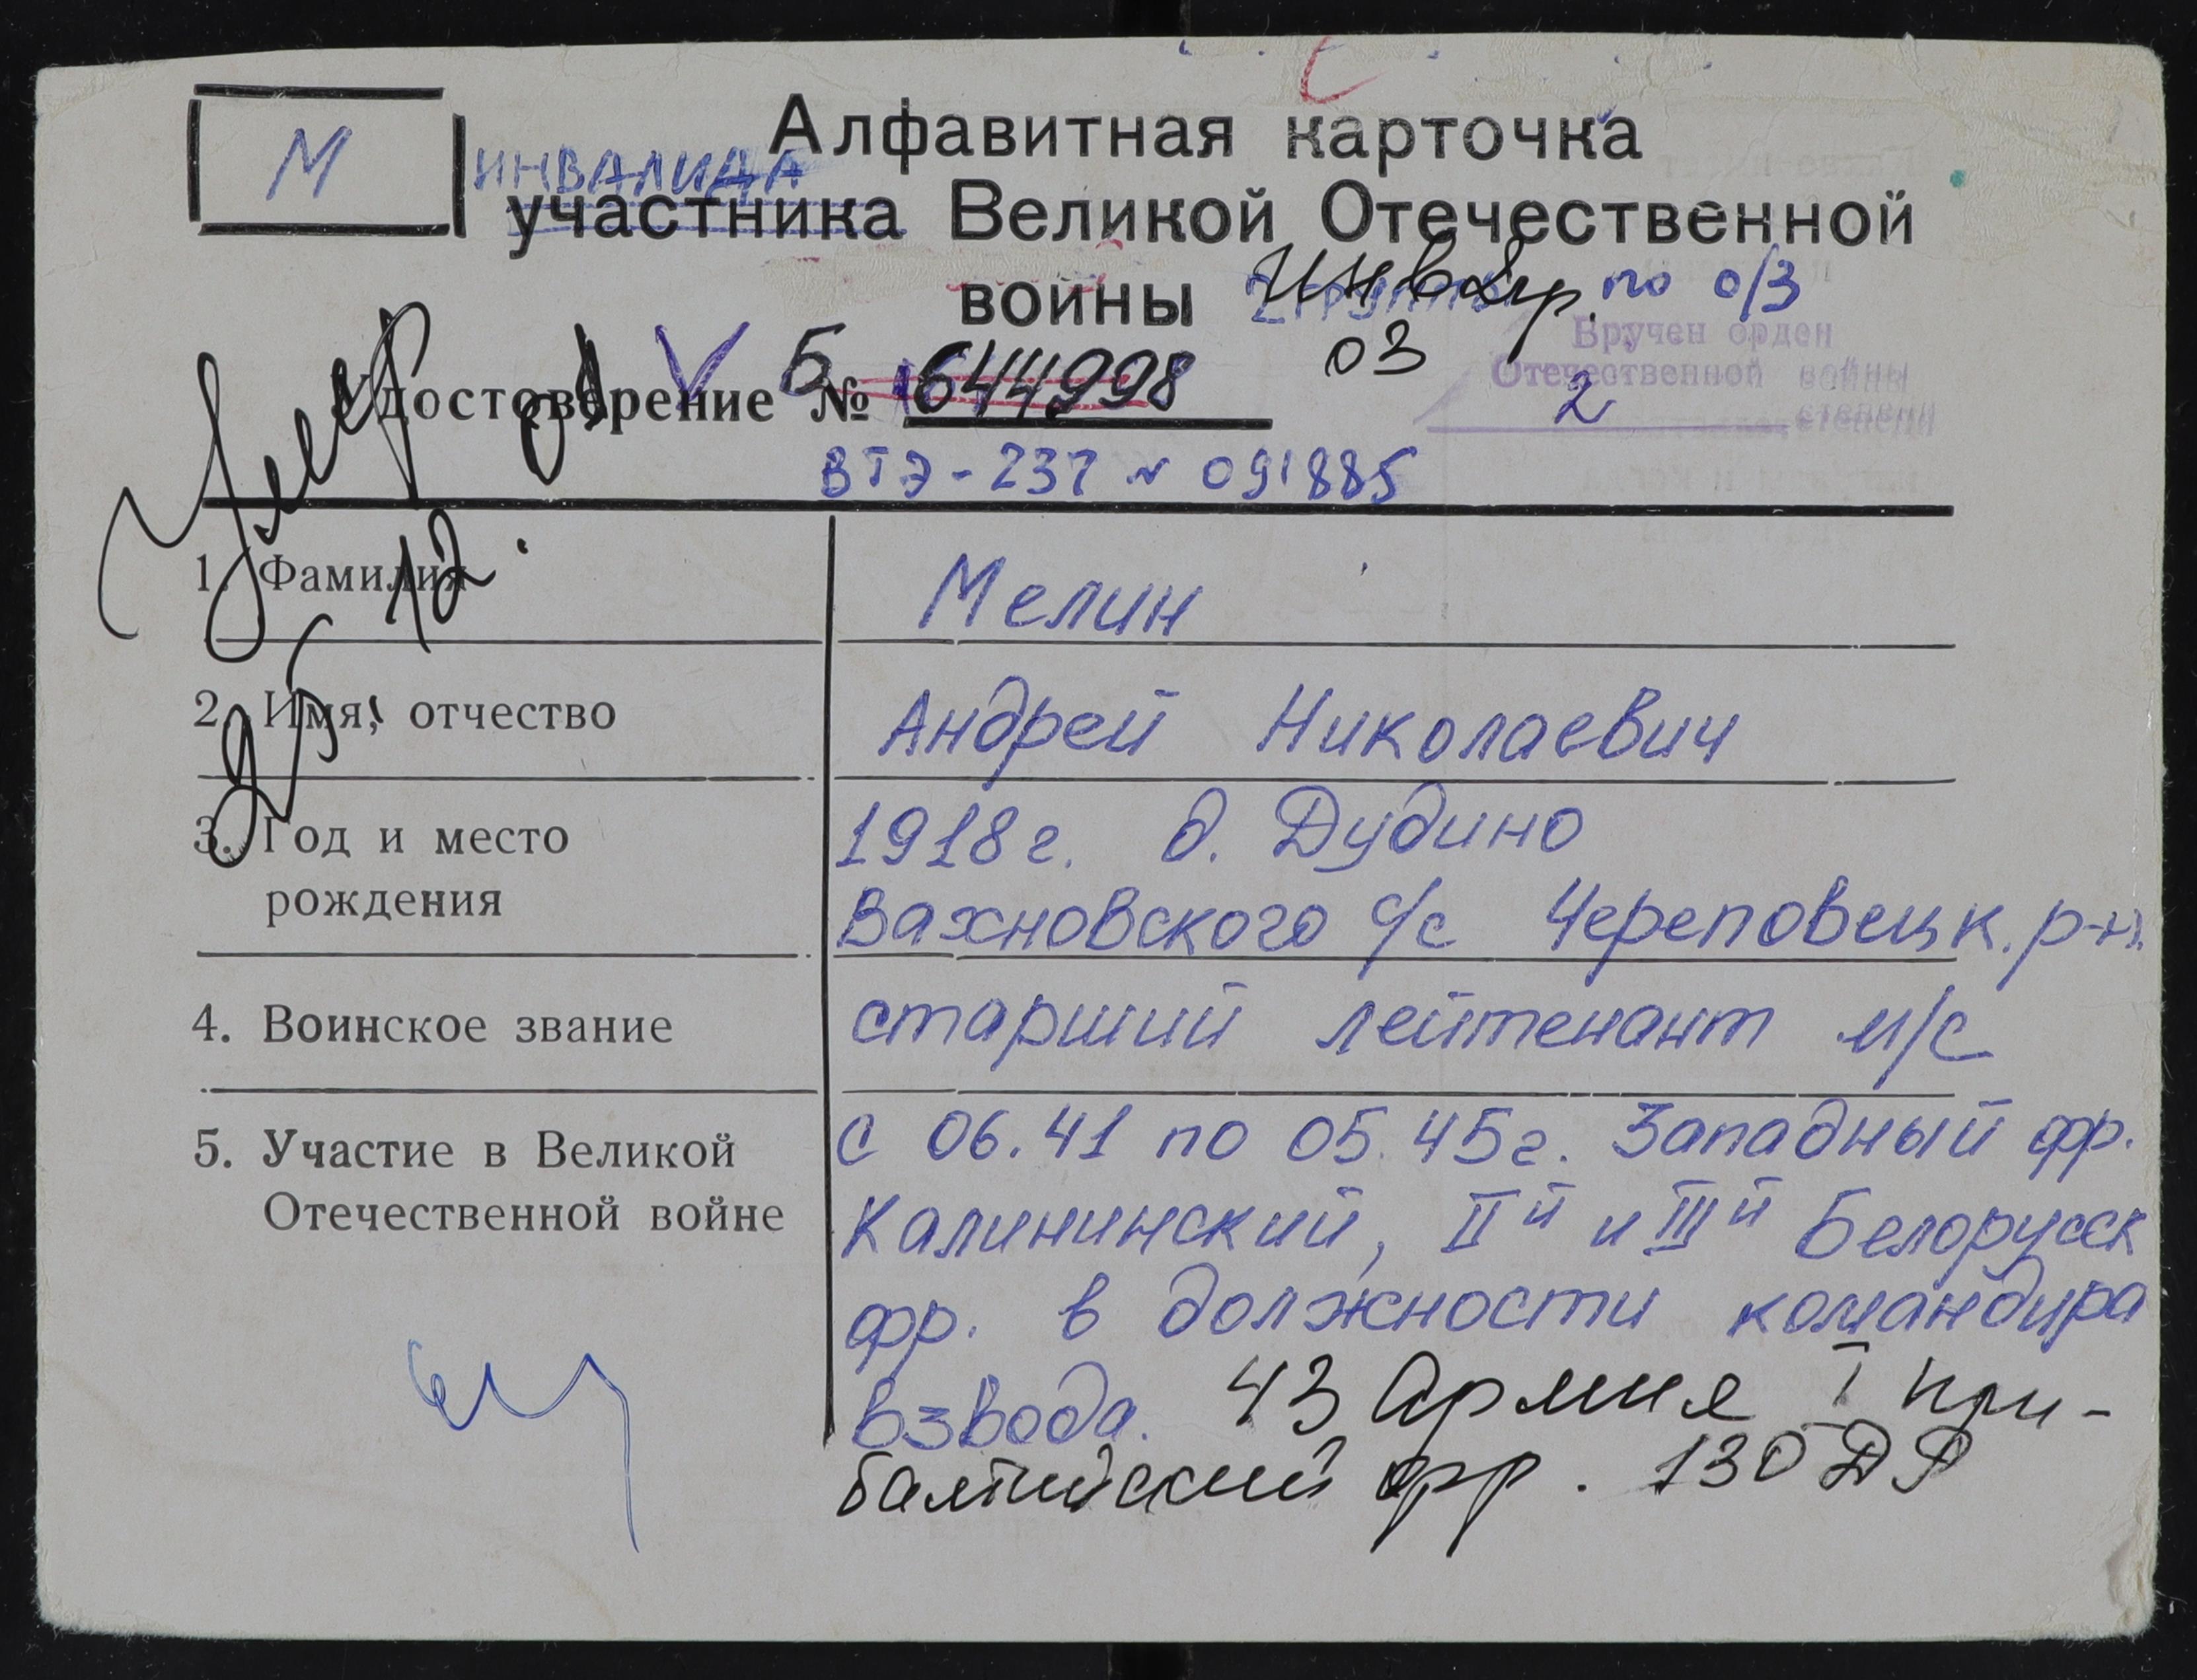 М
Алфавитная карточка
ИНВАЛИДА
участника Великой Отечественной
войны
по о/з
03
Вручен орден
Отечественной войны
2 степени
Удостоверение Б № 644998
ВТЭ-237 № 091885
Умер
12.
1. Фамилия
Мелин
2. Имя, отчество
Андрей Николаевич
3. Год и место
рождения
1918 г. д. Дудино
Вахновского с/с Череповецк. р-н.
4. Воинское звание
старший лейтенант м/с
5. Участие в Великой
Отечественной войне
с 06.41 по 05.45г. Западный фр.
Калининский, IIй и IIIй Белорусск
фр. в должности командира
взвода. 43 Армия I При-
балтийский фр. 130